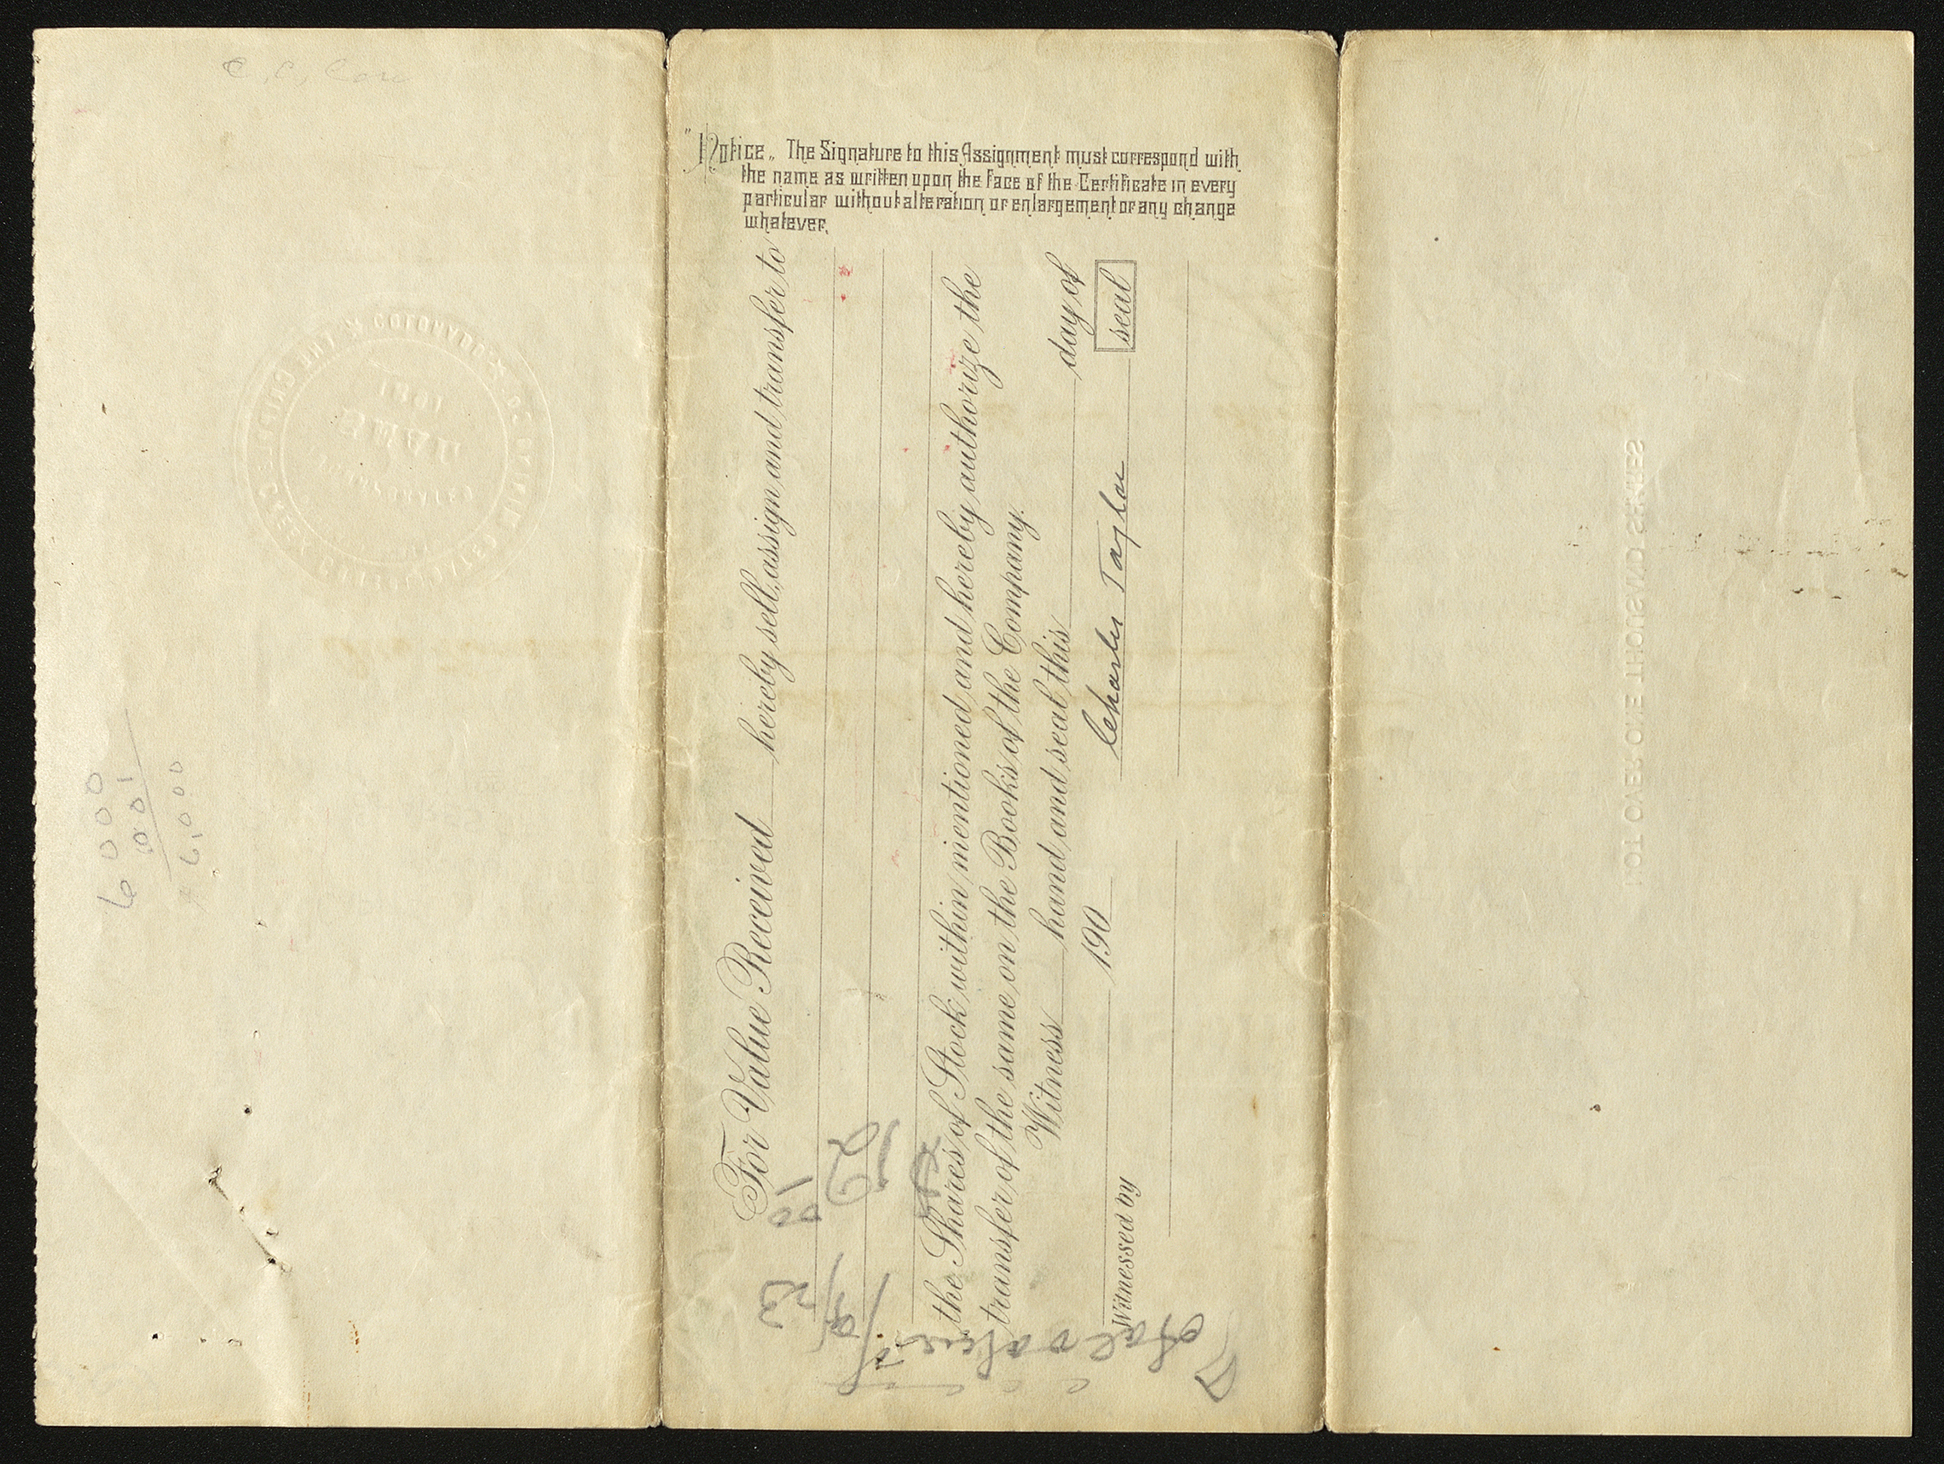 "Notice" The Signature to this Assignment must correspond with
the name as written upon the face of the Certificate in every
particular without alteration or enlargement or any change
whatever.
For Value Received hereby sell, assign and transfer to
the Shares of Stock within mentioned and hereby authorize the
transfer of the same on the Books of the Company.
Witness hand and seal this day of
190 Charles Taylor seal
Witnessed by
6000
1001
6,000
Total value
12
00
NOT OVER ONE THOUSAND SHARES
1901
SEAL